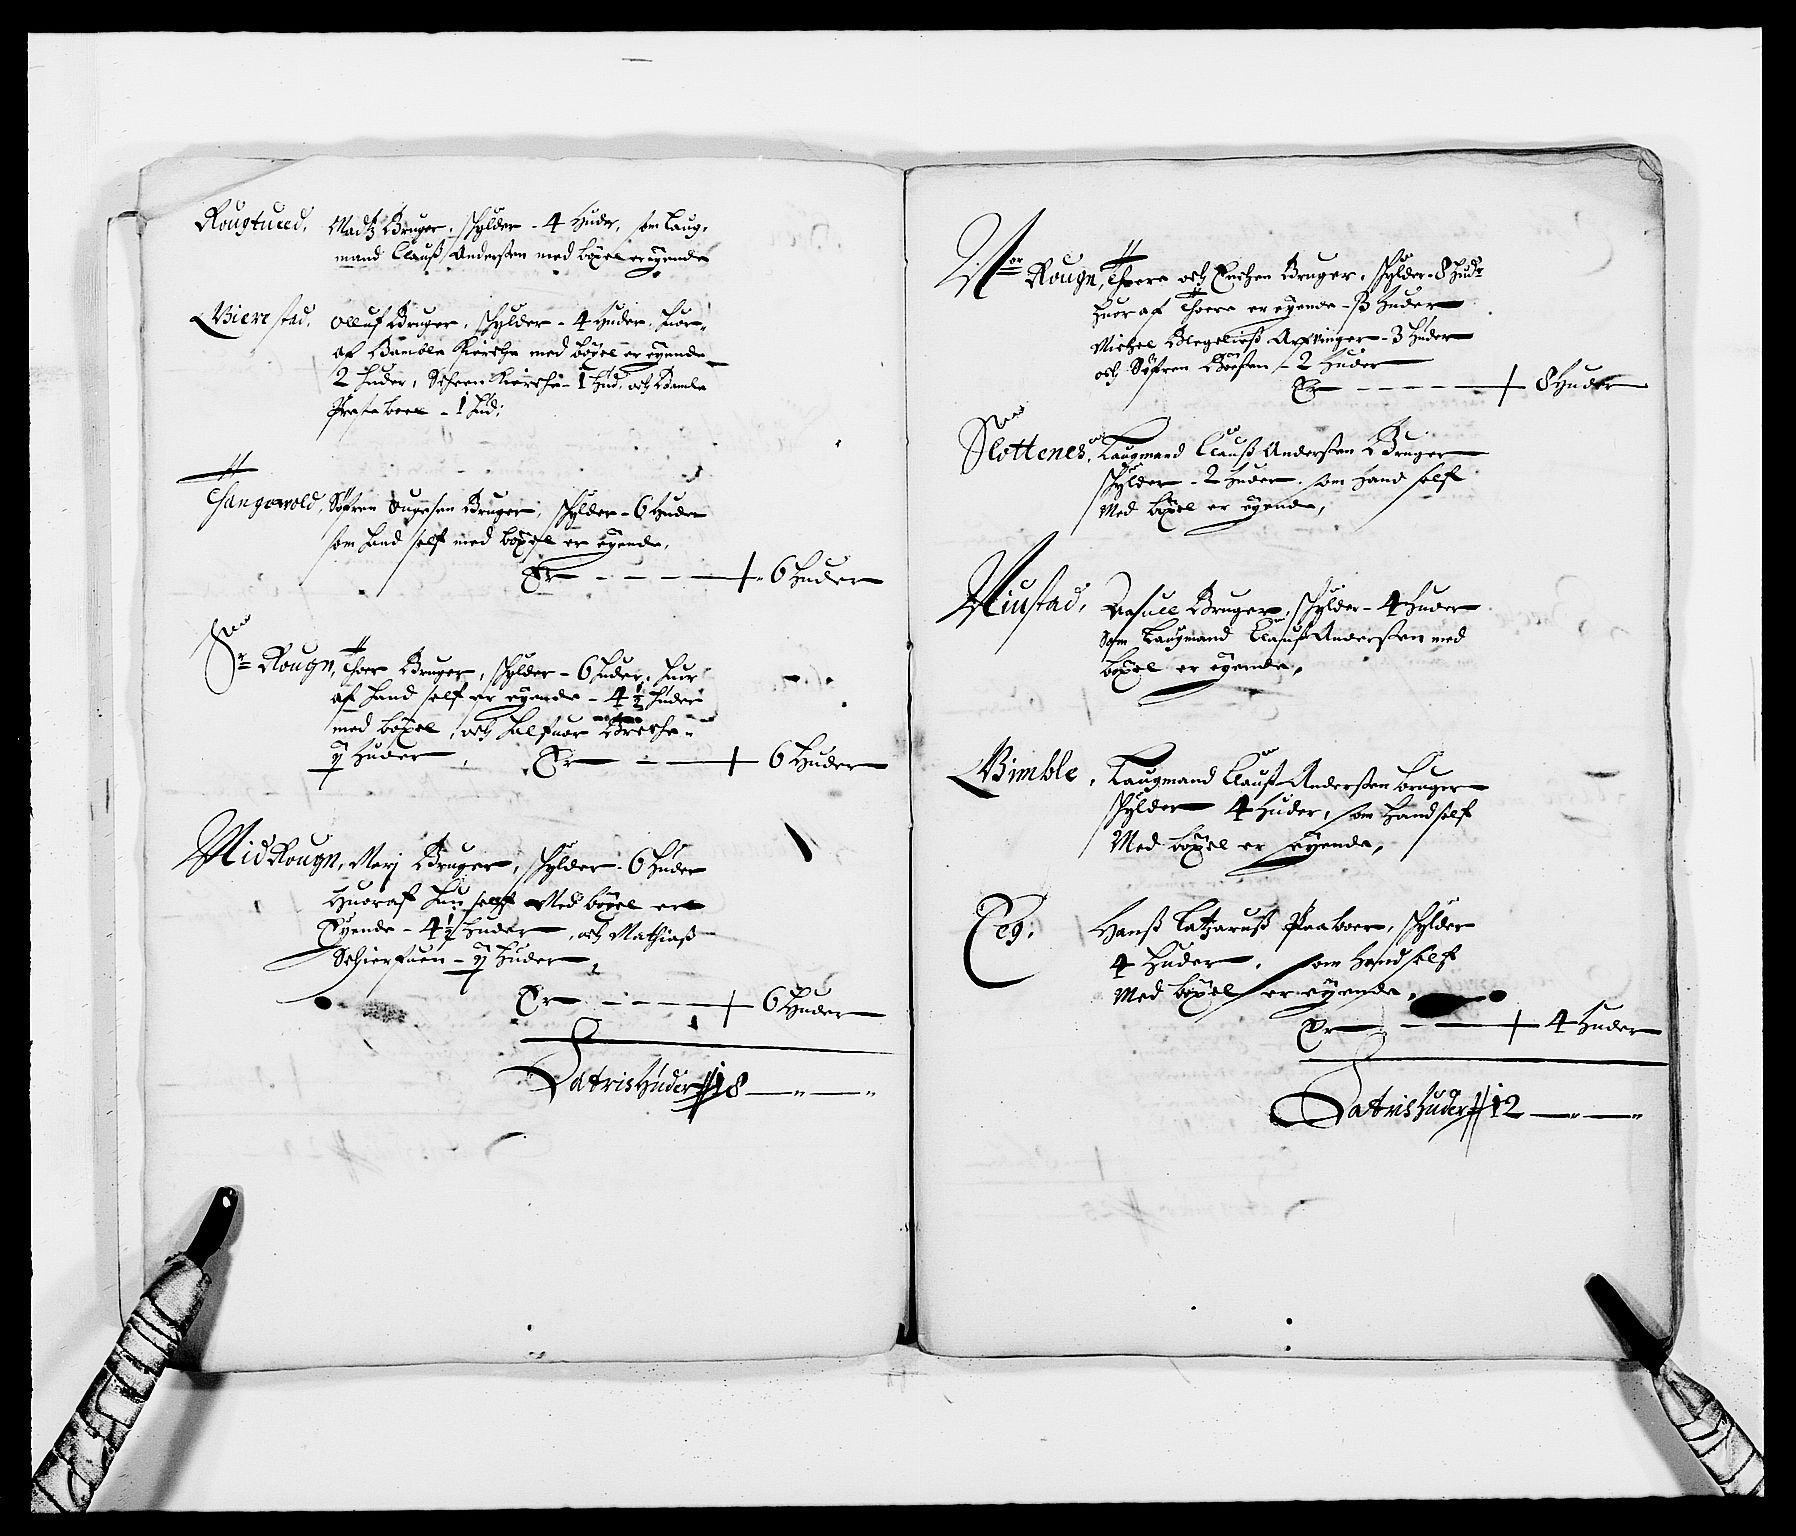 Rougtued, Madtz Bruger, skylder - 4 Huder, som Laug-
mand Clauß Anderßen med böxel er eyende
Bierestad, Olluf Bruger, skylder - 4 Huder, huor-
af Bamble Kierche med böxel er eyende
2 Huder, Scheen Kierche - 1 Hud, och Bamble
Presteboel - 1 Hud;
Tangevold, Söfren Bruger, skylder - 6 Huder
som Hand self med böxel er eyende,
Er - - - - 6 Huder
Sr Rougn, Thor Bruger, skylder - 6 Huder, huor
af Hand self er eyende - 4½ Huder
med böxel, och Halfuor
Huder, Er - - 6 Huder
Mid Rougn, Marj Bruger, skylder - 6 Huder
Huoraf Hun self Med böxel er
Eyende - 4½ Huder, och Mathiaß
Huder,
Er - - - 6 Huder
Latris Huder 18 — " — "
Nor Rougn, Thore och Bruger, skylder - 8 Hudr
Huoraf Thore er eyende - 3 Huder
Michel Arfvinger - 3 Huder
och Söfren - 2 Huder
Er - - - - 8 Huder
Slottenes, Laugmand Clauß Anderßen Bruger
skylder - 2 Huder, som Hand self
Med böxel er eyende,
Niustad, Bruger, skylder - 4 Huder
som Laugmand Clauß Anderßen med
böxel er eyende,
Bimble, Laugmand Clauß Anderßen bruger
skylder 4 Huder, som Hand self
Med böxel er eyende,
Eeg, Hanß Latzaruß Paaboer, skylder
4 Huder, som Hand self
Med böxel er eyende,
Er - - - 4 Huder
Latris Huder 12 — " — "